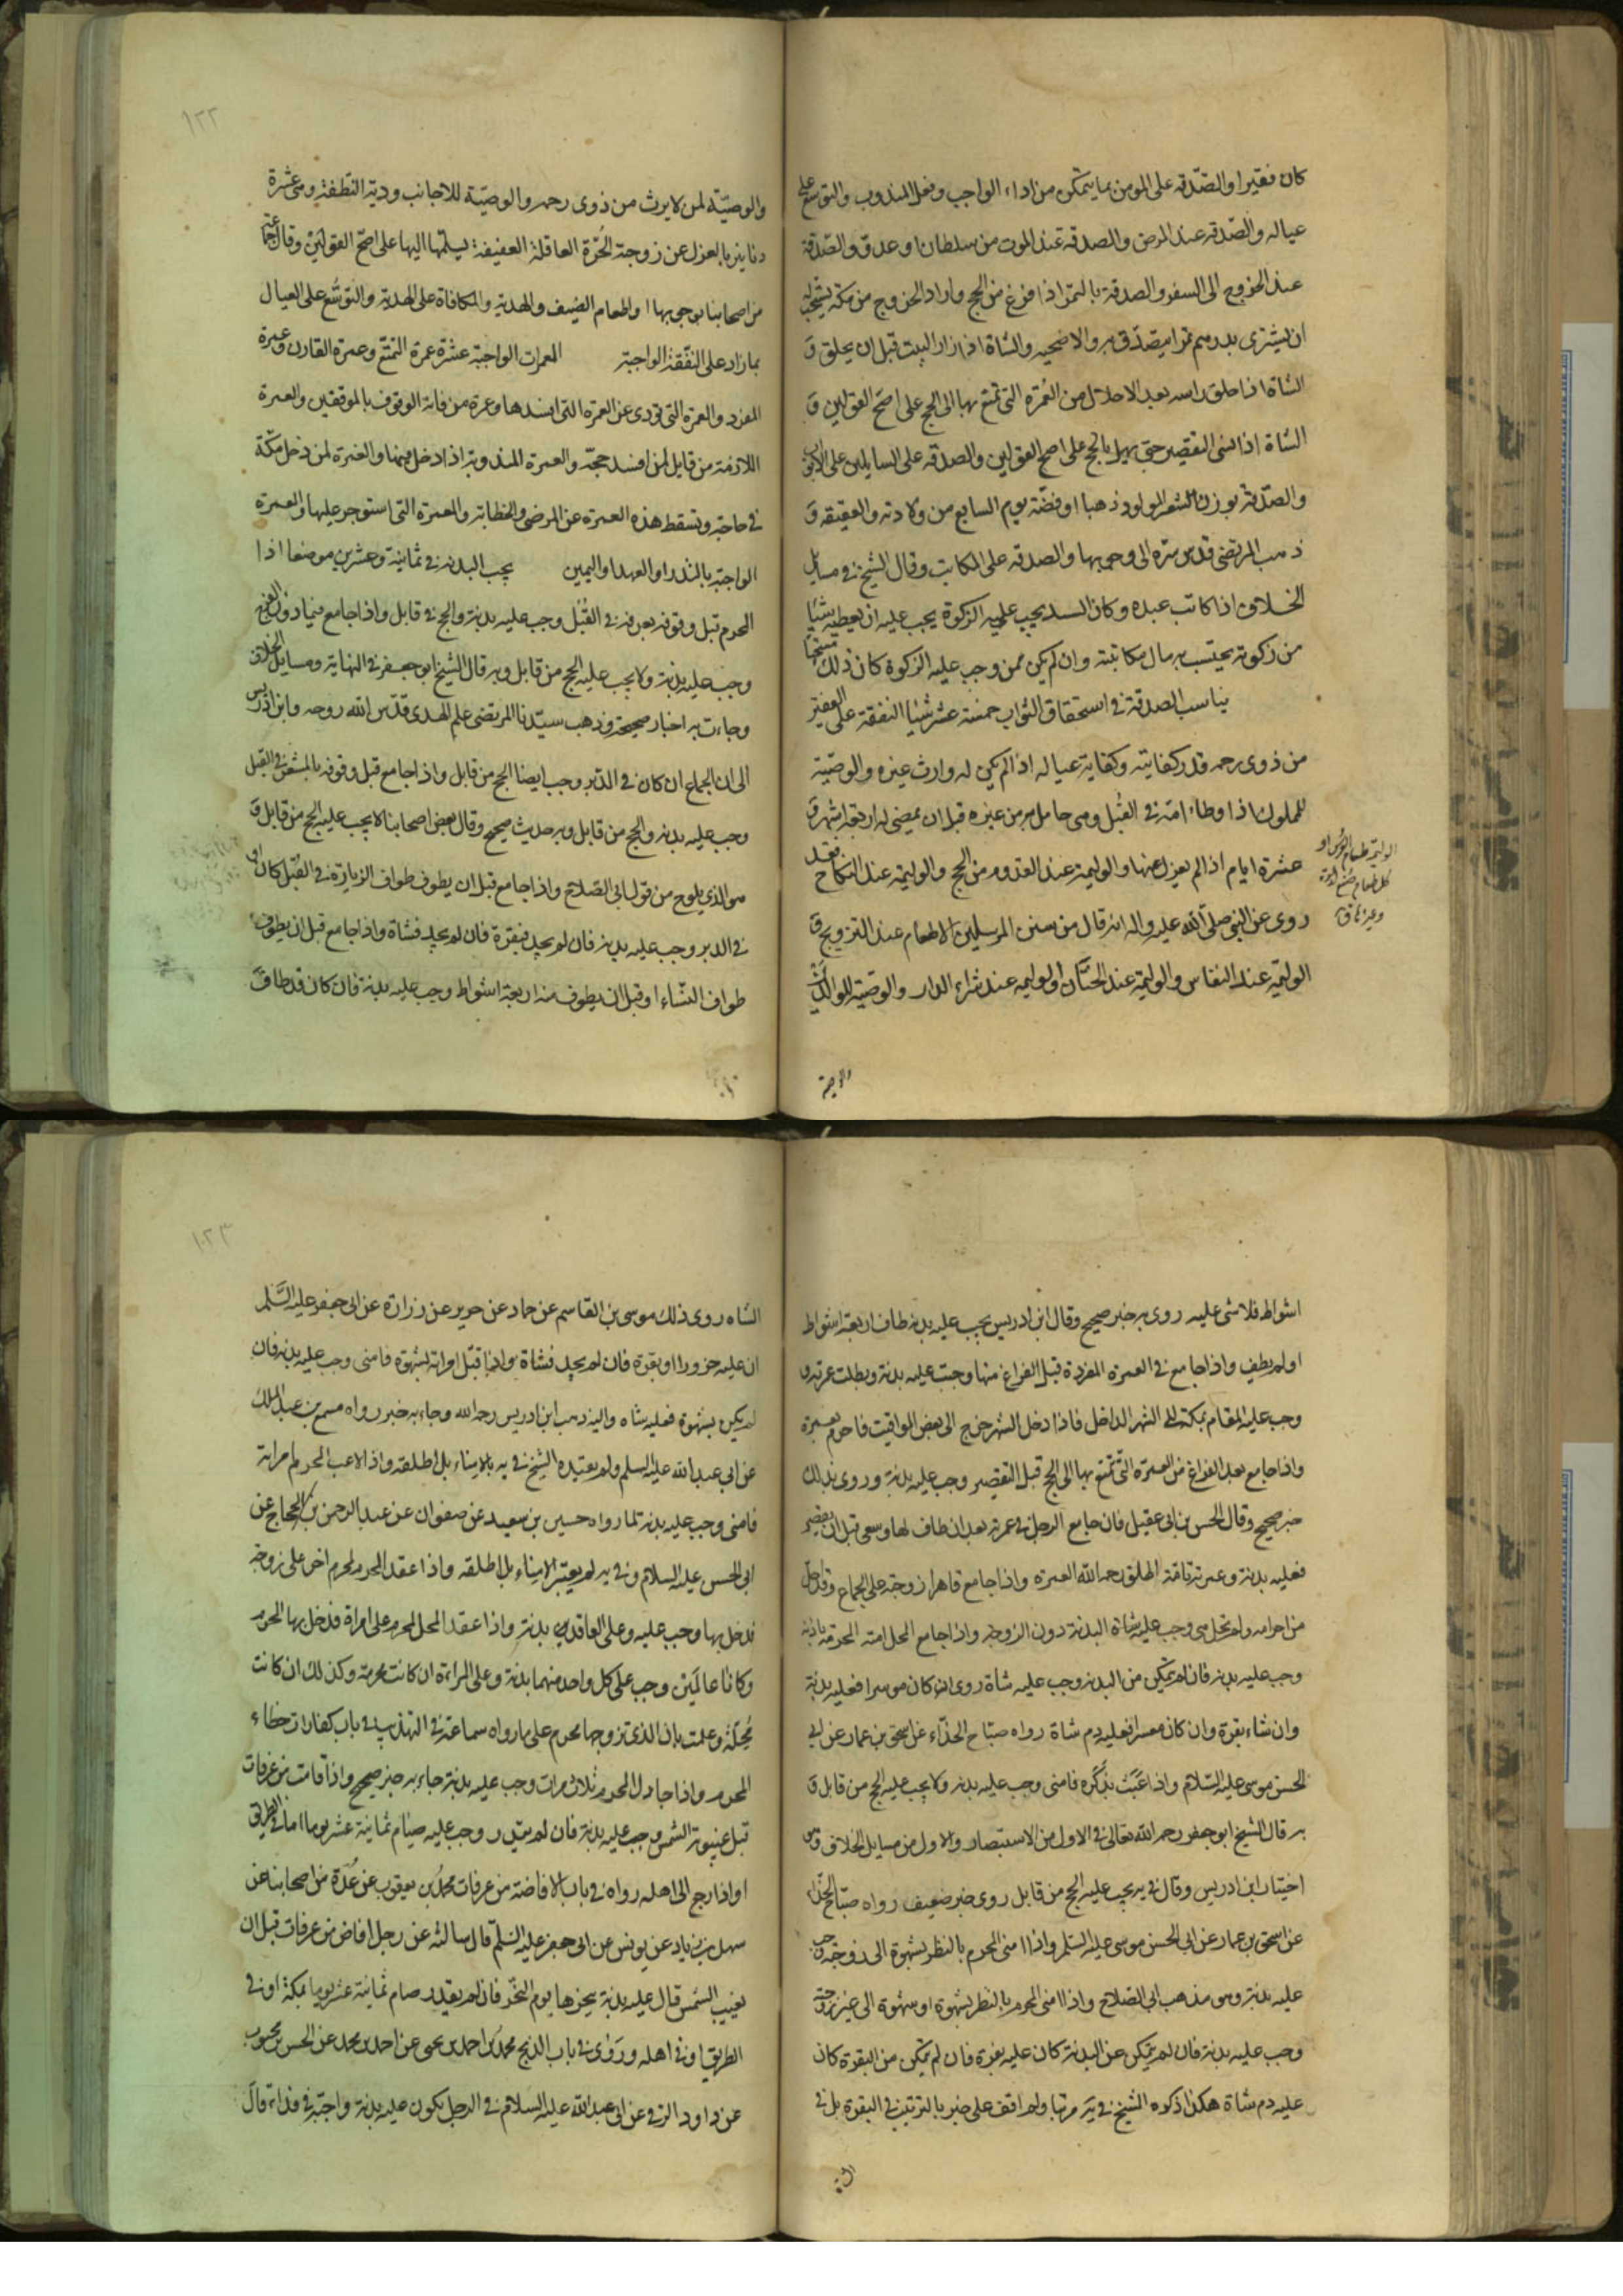 كان فقيرا والصدقه على المومن بما يتمكن من اداء الواجب وفعل المندوب والتوسع على
عياله والصدقه عند المرض والصدقه عند الموت من سلطان او عدو والصدقة
عند الخروج الى السفر والصدقة بالتمر اذا فرغ من الحج واراد الخروج من مكة يستحب له
ان يشترى بدرهم تمرا ميصدق به والاضحيه والشاة اذا زار البيت قبل ان يحلق و
الشاة اذا حلق راسه بعد الاحلال من العمرة التى تمتع بها الى الحج على اصح القولين و
الشاة اذا نسى التقصير حتى يهل بالحج على اصح القولين والصدقه على السايلين على الابواب
والصدقة بوزن شعر المولود ذهبا او فضة يوم السابع من ولادته والعقيقه و
ذهب المرتضى قدس سره الى وجوبها والصدقه على المكاتب وقال الشيخ فى مسايل
الخلاف اذا كاتب عبده وكان السيد يجب عليه الزكوة يجب عليه ان يعطيه شيئا
من زكوته يحتسب به مال مكاتبته وان لم يكن ممن وجب عليه الزكوة كان ذلك مستحبا
يناسب الصدقة فى استحقاق الثواب خمسة عشر شيئا النفقة على الفقير
من ذوى رحمه قدر كفايته وكفاية عياله اذا لم يكن له وارث غيره والوصية
للمملوك اذا وطاء امته فى القبل وهى حامل من غيره قبل ان يمضى لها اربعة اشهر و
عشرة ايام اذا لم يعزل عنها والوليمة عند القدوم من الحج والوليمة عند النكاح فقد
روى عن النبى صلى الله عليه واله انه قال من سنن المرسلين الاطعام عند التزويج و
الوليمة عند النفاس والوليمة عند الختان والوليمه عند شراء الدار والوصية للوالدين
الوليمة طعام العرس او
كل طعام صنع لدعوة
وغيرها ق
والوصية
١٢٢
والوصية لمن لا يرث من ذوى رحمه والوصية للاجانب ودية النطفة وهى عشرة
دنانير بالعزل عن زوجته الحرة العاقلة العفيفة يسلمها اليها على اصح القولين وقال جماعة
من اصحابنا بوجوبها واطعام الضيف والهدية والمكافاة على الهدية والتوسع على العيال
بما زاد على النفقة الواجبة العمرات الواجبة عشرة عمرة التمتع وعمرة القارن وعمرة
المفرد والعمرة التى تؤدى عن العمرة التى افسدها وعمرة من فاته الوقوف بالموقفين والعمرة
اللازمة من قابل لمن افسد حجته والعمرة المندوبة اذا دخل فيها والعمرة لمن دخل مكة
فى حاجة وتسقط هذه العمرة عن المرضى والحطابة والعمرة التى استوجر عليها والعمرة
الواجبة بالنذر او العهد او اليمين يجب البدنة فى ثمانية وعشرين موضعا اذا
المحرم قبل وقوفه بعرفه فى القبل وجب عليه بدنة والحج فى قابل واذا جامع فيما دون الفرج
وجب عليه بدنة ولا يجب عليه الحج من قابل وبه قال الشيخ ابو جعفر فى النهاية ومسايل الخلاف
وجاءت به اخبار صحيحة وذهب سيدنا المرتضى علم الهدى قدس الله روحه وابن ادريس
الى ان الجماع ان كان فى الدبر وجب ايضا الحج من قابل واذا جامع قبل وقوفه بالمشعر فى القبل
وجب عليه بدنة والحج من قابل وبه حديث صحيح وقال بعض اصحابنا لا يجب عليه الحج من قابل و
هو الذى يلوح من قول ابى الصلاح واذا جامع قبل ان يطوف طواف الزيارة فى القبل كان او
فى الدبر وجب عليه بدنة فان لم يجد فبقرة فان لم يجد فشاة واذا جامع قبل ان يطوف
طواف النساء او قبل ان يطوف منه اربعة اشواط وجب عليه بدنة فان كان قد طاف
اشواط فلا شى عليه روى به خبر صحيح وقال ابن ادريس يجب عليه بدنة طاف اربعة اشواط
او لم يطف واذا جامع فى العمرة المفردة قبل الفراغ منها وجبت عليه بدنة وبطلت عمرته و
وجب عليه المقام بمكة الى الشهر الداخل فاذا دخل الشهر خرج الى بعض المواقيت فاحرم بعمرة
واذا جامع بعد الفراغ من العمرة التى تمتع بها الى الحج قبل التقصير وجب عليه بدنة وروى بذلك
خبر صحيح وقال الحسن بن ابى عقيل فان جامع الرجل فى عمرته بعد ان طاف لها وسعى قبل ان يقصر
فعليه بدنة وعمرته تامة اطلق رحمه الله العمرة واذا جامع قاهرا زوجته على الجماع وقد احل
من احرامه ولم تحل هى وجب عليه البدنة دون الزوجة واذا جامع المحل امته المحرمة باذنه
وجب عليه بدنة فان لم يتمكن من البدنة وجب عليه شاة روى ان كان موسرا فعليه بدنة
وان شاء بقرة وان كان معسرا فعليه دم شاة رواه صباح الحذاء عن اسحق بن عمار عن ابى
الحسن موسى عليه السلام واذا عبث بذكره فامنى وجب عليه بدنة ولا يجب عليه الحج من قابل و
به قال الشيخ ابو جعفر رحمه الله تعالى فى الاول من الاستبصار والاول من مسايل الخلاف وهو
اختيار ابن ادريس وقال فى يه يجب عليه الحج من قابل روى خبر ضعيف رواه صباح الحذاء
عن اسحق بن عمار عن ابى الحسن موسى عليه السلم واذا امنى المحرم بالنظر بشهوة الى زوجته وجب
عليه بدنة وهو مذهب ابى الصلاح واذا امنى المحرم بالنظر بشهوة او بشهوة الى غير زوجته
وجب عليه بدنة فان لم يتمكن من البدنة كان عليه بقرة فان لم يتمكن من البقرة كان
عليه دم شاة هكذا ذكره الشيخ فى يه مرتبا ولم اقف على خبر بالترتيب فى البقرة بل فى
١٢٣
الشاه روى ذلك موسى بن القاسم عن حماد عن حريز عن زرارة عن ابى جعفر عليه السلم
ان عليه جزورا او بقرة فان لم يجد فشاة واذا قبل امراته بشهوة فامنى وجب عليه بدنة فان
لم يكن بشهوة فعليه شاه واليه ذهب ابن ادريس رحمه الله وجاء به خبر رواه مسمع بن عبد الملك
عن ابى عبد الله عليه السلم ولم يقيده الشيخ فى يه بالامناء بل اطلقه واذا لاعب المحرم امراته
فامنى وجب عليه بدنة لما رواه حسين بن سعيد عن صفوان عن عبد الرحمن بن الحجاج عن
ابى الحسن عليه السلام وفى يه لم يعتبر الامناء بل اطلقه واذا عقد المحرم لمحرم اخر على زوجة
فدخل بها وجب عليه وعلى العاقد بدنة واذا عقد المحل لمحرم على امراة فدخل بها المحرم
وكانا عالمين وجب على كل واحد منهما بدنة وعلى المراءة ان كانت محرمة وكذلك ان كانت
محلة وعلمت بان الذى تزوجها محرم على ما رواه سماعة فى التهذيب فى باب كفارات خطاء
المحرم واذا جادل المحرم ثلاث مرات وجب عليه بدنة جاء به خبر صحيح واذا افاض من عرفات
قبل غيبوبة الشمس وجب عليه بدنة فان لم يقدر وجب عليه صيام ثمانية عشر يوما اما فى الطريق
او اذا رجع الى اهله رواه فى باب الافاضة من عرفات محمد بن يعقوب عن عدة من اصحابنا عن
سهل بن زياد عن يونس عن ابى جعفر عليه السلم قال سالته عن رجل افاض من عرفات قبل ان
تغيب الشمس قال عليه بدنة ينحرها يوم النحر فان لم يقدر صام ثمانية عشر يوما بمكة او فى
الطريق او فى اهله وروى فى باب الذبح محمد بن احمد بن يحيى عن احمد بن محمد عن الحسن بن محبوب
عن داود الرقى عن ابى عبد الله عليه السلام فى الرجل يكون عليه بدنة واجبة فى فداء قال